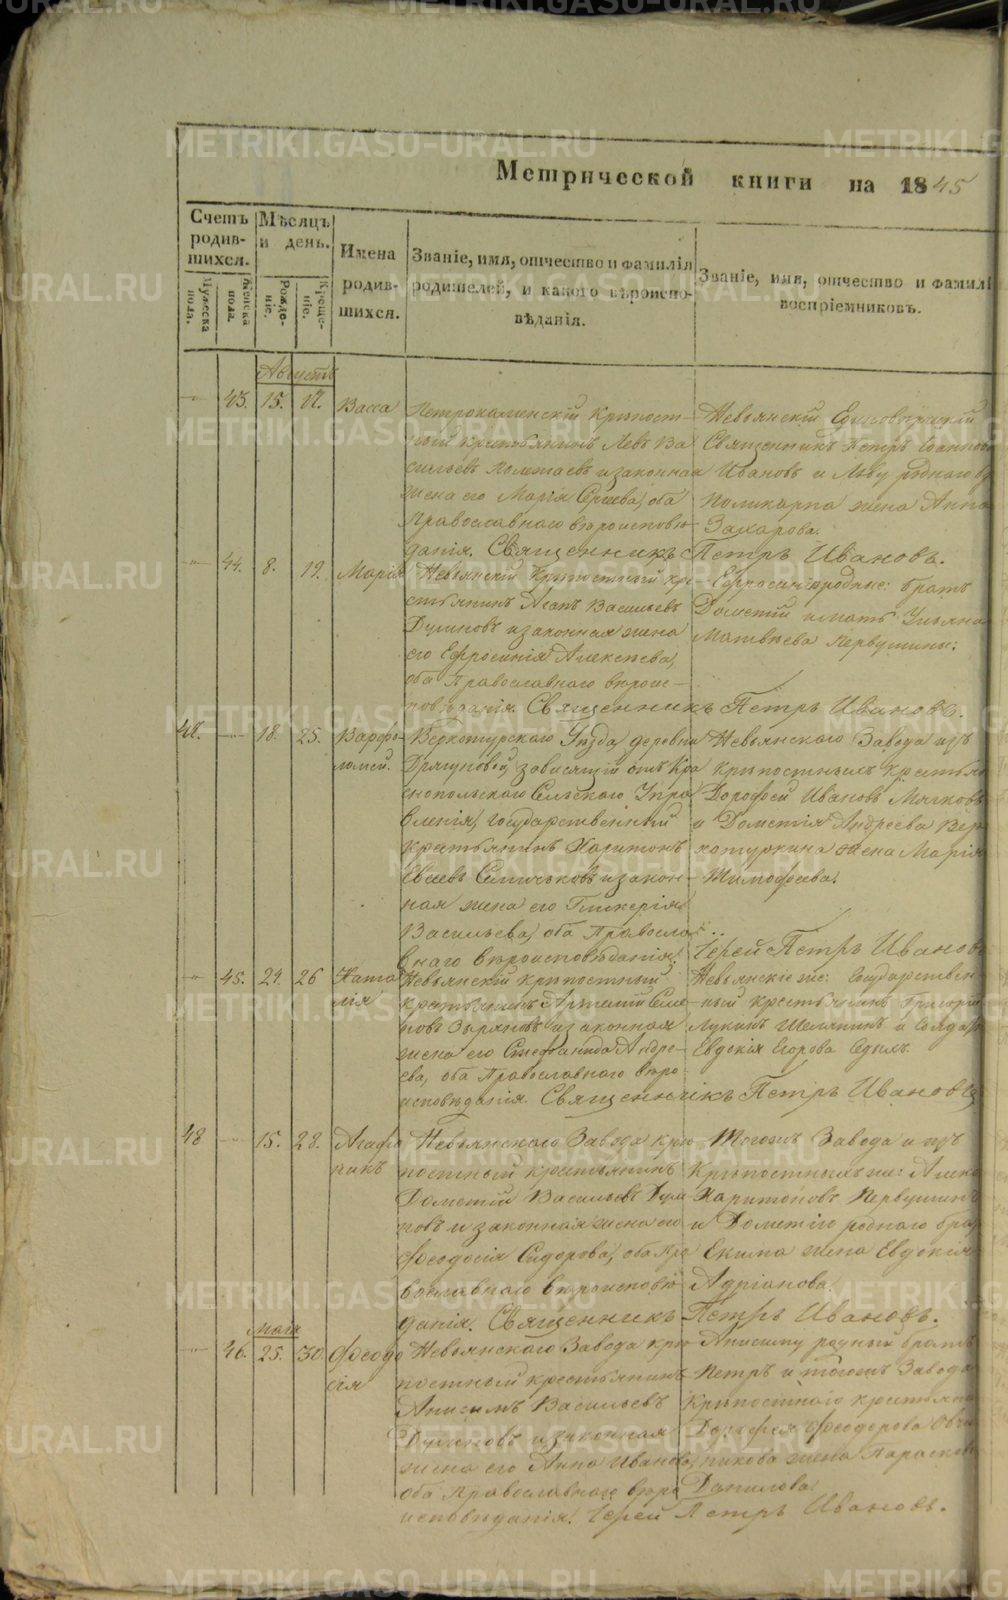 Метрической книги на 1845
Счетъ родив-шихся.
Мужеска пола.
Женска пола.
Мѣсяцъ и день.
Рожде-ніе.
Креще-ніе.
Имена родив-шихся.
Званіе, имя, отчество и фамилія родителей, и какого вѣроиспо-вѣданія.
Званіе, имя, отчество и фамилі
воспріемниковъ.
Августъ
43. 15. 17. Васса
Петрокаменскій крѣпост-
ный крестьянинъ Левъ Ва
сильевъ Полетаевъ и законная
жена его Марія Сергѣева, оба
православнаго вѣроисповѣ
данія. Священникъ Петръ Ивановъ.
Невьянскій Единовѣрческій
Священникъ Петръ
Ивановъ и Льву роднаго бр
Поликарпа жена Анна
Захарова.
44. 8. 19. Марія
Невьянскій крѣпостный кре-
стьянинъ Васильевъ
и законная жена
его Ефросинія Алексѣева,
оба Православнаго вѣроис-
повѣданія. Священникъ Петръ Ивановъ.
Ефросиніи родные: братъ
Дометій и мать Ульяна
Матвѣева Первушины.
42. 18. 25. Варфо-
ломей.
Верхотурскаго Уѣзда деревни
зависящій отъ Кра
снопольскаго Сельскаго Упра
вленія, Государственный
крестьянинъ Харитонъ
и закон-
ная жена его Гликерія
Васильева, оба Православ
наго вѣроисповѣданія.
Невьянскаго Завода изъ
крѣпостныхъ крестьян
Дорофей Ивановъ Мягковъ
и Дометія Андреева Вер
хотуркина жена Марія
Тимофеева.
Іерей Петръ Ивановъ
45. 21. 26 Ната
лія
Невьянскій крѣпостный
крестьянинъ Артемій Семе
новъ Зыряновъ и законная
жена его Степанида Андре-
ева, оба Православнаго вѣро
исповѣданія. Священникъ Петръ Ивановъ
Невьянскіе же: Государствен-
ный крестьянинъ Григорій
Лукинъ Шелягинъ и Солдат
Евдокія Егорова Седыхъ.
43 15. 28. Агафо
никъ
Невьянскаго Завода крѣ
постный крестьянинъ
Дометій Васильевъ
и законная жена его
Феодосія Сидорова, оба Пра
вославнаго вѣроисповѣ
данія. Священникъ Петръ Ивановъ.
Тогожъ Завода изъ
крѣпостныхъ же: Алекс
Харитоновъ Первушинъ
и Дометію роднаго брат
Екима жена Евдокія
Адріанова.
Мая
46. 25. 30. Феодо
сія
Невьянскаго Завода крѣ
постный крестьянинъ
Анисимъ Васильевъ
и законная
жена его Анна Иванова,
оба Православнаго вѣро
исповѣданія. Іерей Петръ Ивановъ.
Анисиму родный братъ
Петръ и тогожъ Завода
Крѣпостнаго крестьяни
Феодорова Овчи
никова жена Парасков
Данилова.
METRIKI.GASO-URAL.RU